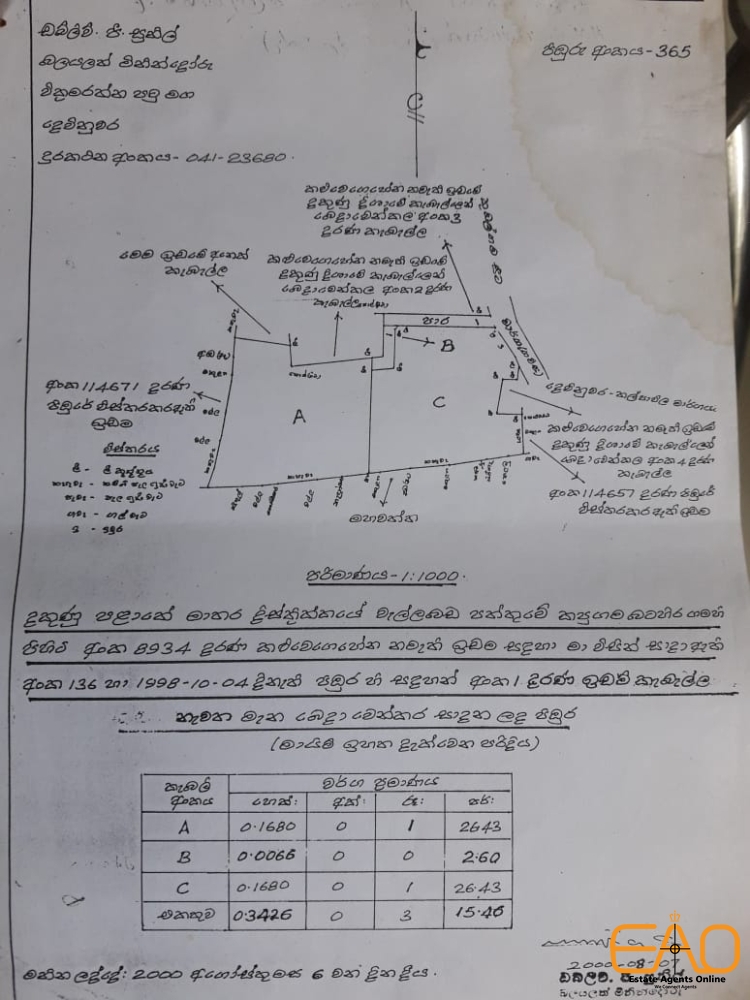 ඩබ්ලිව්. පී. සුසිල්
බලයලත් මිනින්දෝරු
වික්‍රමරත්න පටු මග
දෙවිනුවර
දුරකථන අංකය - 041-23680.
පිඹුරු අංකය - 365
කළුවෙගෙහේන නමැති ඉඩමේ
දකුණු දිශාවේ කැබැල්ලෙන්
බෙදාවෙන්කල අංක 3
දරණ කැබැල්ල
මෙම ඉඩමේ අනෙක්
කැබැල්ල
කළුවෙගෙහේන නමැති ඉඩමේ
දකුණු දිශාවේ කැබැල්ලෙන්
බෙදාවෙන්කල අංක 2 දරණ
කැබැල්ල
පාර
B
A
C
අංක 114671 දරණ
පිඹුරේ විස්තරකර ඇති
ඉඩම
විස්තරය
දෙවිනුවර - තල්පාවිල මාර්ගය
කළුවෙගෙහේන නමැති ඉඩමේ
දකුණු දිශාවේ කැබැල්ලෙන්
බෙදාවෙන්කල අංක 4 දරණ
කැබැල්ල
අංක 114657 දරණ පිඹුරේ
විස්තරකර ඇති ඉඩම
මහවත්ත
පරිමාණය - 1:1000.
දකුණු පළාතේ මාතර දිස්ත්‍රික්කයේ වැල්ලබඩ පත්තුවේ කපුගම බටහිර ගමෙහි
පිහිටි අංක 8934 දරණ කළුවෙගෙහේන නමැති ඉඩම සඳහා මා විසින් සාදා ඇති
අංක 136 හා 1998-10-04 දිනැති පිඹුරේ හි සඳහන් අංක 1 දරණ ඉඩම් කැබැල්ල
නැවත මැන බෙදා වෙන්කර සාදන ලද පිඹුර
(මායිම් ඉහත දැක්වෙන පරිදිය)
කැබලි අංකය වර්ග ප්‍රමාණය
හෙක්: අක්: රූ: පර්:
A 0.1680 0 1 26.43
B 0.0066 0 0 2.60
C 0.1680 0 1 26.43
එකතුව 0.3426 0 3 15.46
මනින ලද්දේ: 2000 අගෝස්තු මස 6 වන දින දීය.
2000-08-07
ඩබ්ලිව්. පී. සුසිල්
බලයලත් මිනින්දෝරු
EAO
Estate Agents Online
We Connect Agents